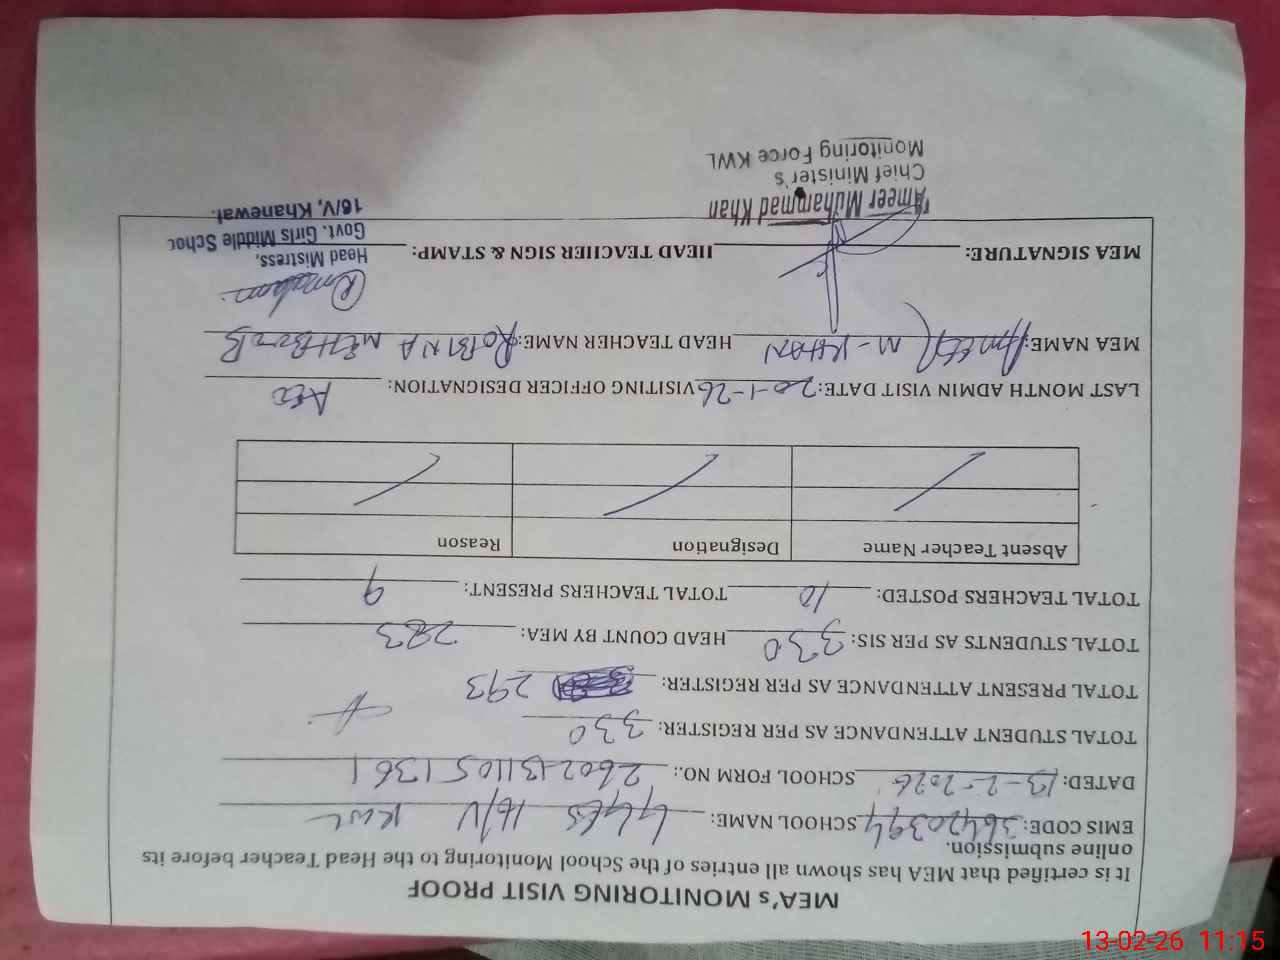 MEA's MONITORING VISIT PROOF
It is certified that MEA has shown all entries of the School Monitoring to the Head Teacher before its
online submission.
EMIS CODE: 36420394 SCHOOL NAME: GGES 16/V KWL
DATED: 13-2-2026 SCHOOL FORM NO.: 26021311051361
TOTAL STUDENT ATTENDANCE AS PER REGISTER: 330
TOTAL PRESENT ATTENDANCE AS PER REGISTER: 293
TOTAL STUDENTS AS PER SIS: 330 HEAD COUNT BY MEA: 283
TOTAL TEACHERS POSTED: 10 TOTAL TEACHERS PRESENT: 9
Absent Teacher Name Designation Reason
LAST MONTH ADMIN VISIT DATE: 20-1-26 VISITING OFFICER DESIGNATION: AEO
MEA NAME: AMEER M-KHAN HEAD TEACHER NAME: ROBINA MEHBOOB
MEA SIGNATURE: HEAD TEACHER SIGN & STAMP:
Head Mistress,
Govt. Girls Middle Schoo
16/V, Khanewal.
Ameer Muhammad Khan
Chief Minister's
Monitoring Force KWL
13-02-26 11:15